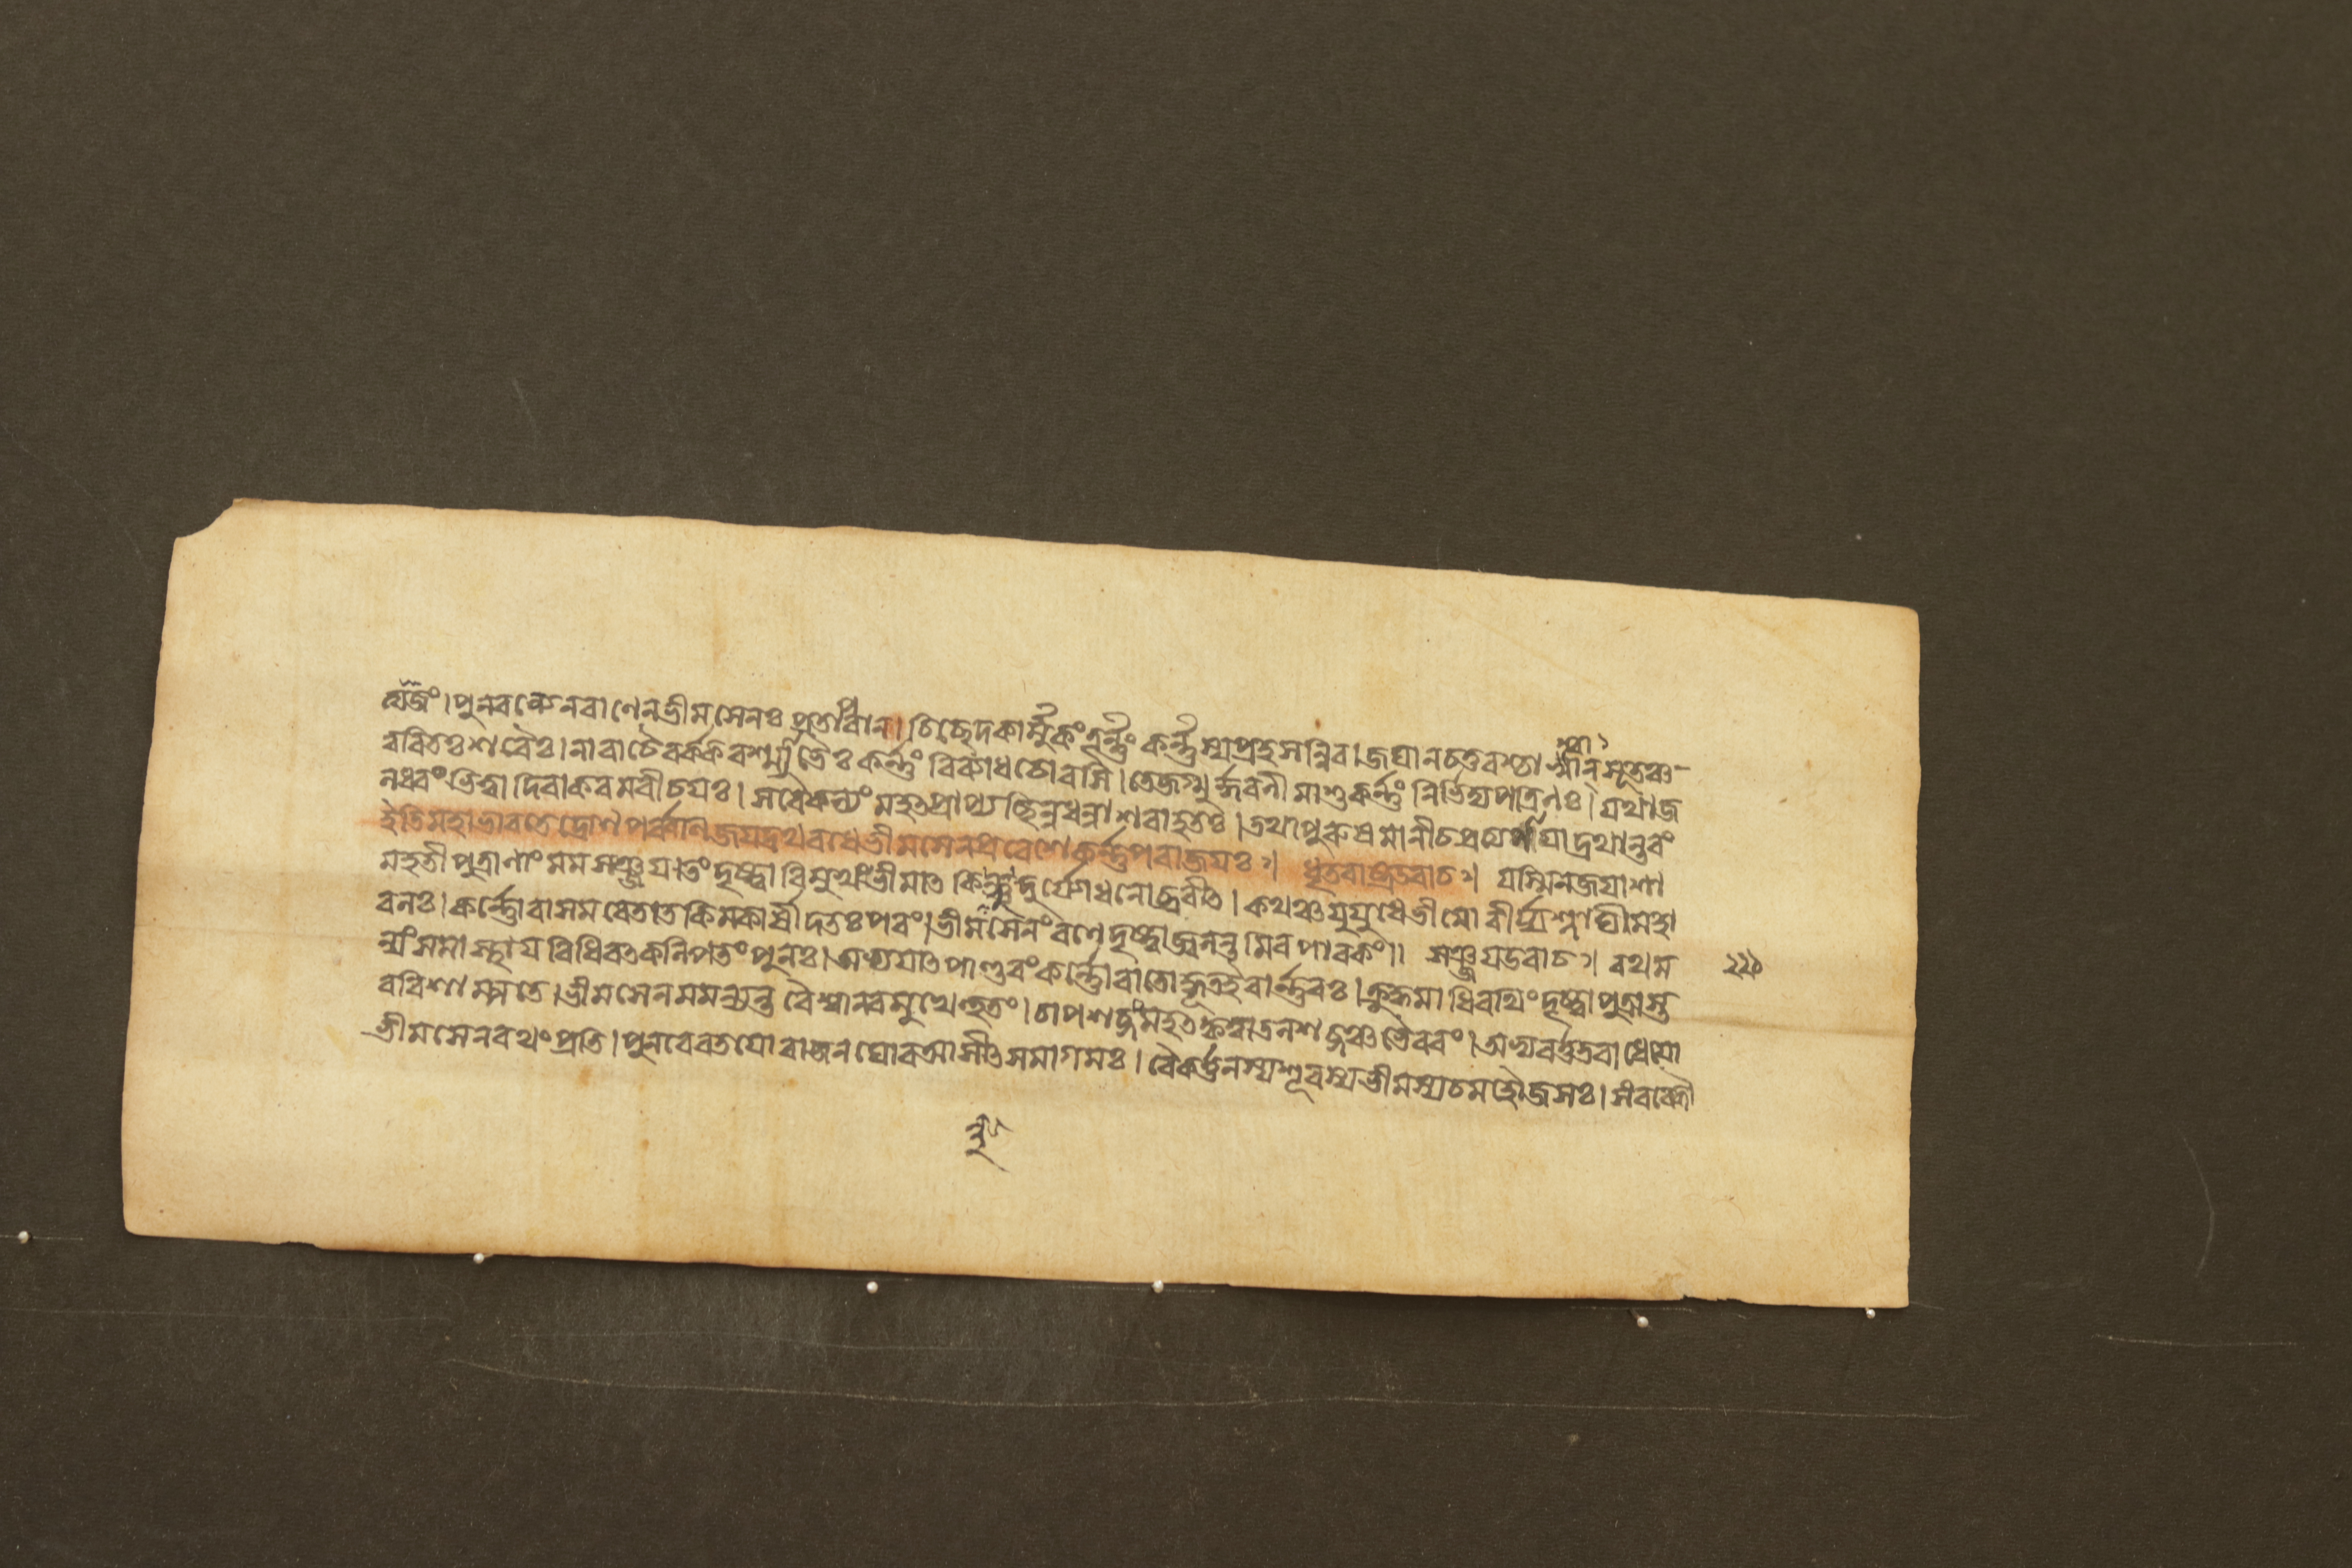 পুনরন্যেনবাণেনভীমসেনঃ প্রতাপবান। চিচ্ছেদকার্ম্মুকংতূর্ন্নং কর্ন্নস্যপ্রহসন্নিব। জঘানচতুরশ্চাশ্বান্ সূতঞ্চ
ত্বরিতঃ শরৈঃ। নারাচৈরর্করশ্ম্যাভৈঃ কর্ন্নং বিব্যাধচোরসি। তেজগ্মুর্দ্ধরনীমাশুকর্ন্নং নির্ভিদ্যপত্রিনঃ। যথাজ
লধরং ভিত্বা দিবাকরমরীচয়ঃ। সবৈকল্যং মহৎপ্রাপ্য ছিন্নধন্বাশরাহতঃ। তথাপুরুষমানীচপ্রত্যপায়াদ্রথান্তরং
ইতিমহাভারতেদ্রোণপর্ব্বণিজয়দ্রথবধেভীমসেনপ্রবেশেকর্ন্নপরাজয়ঃ। ধৃতরাষ্ট্রউবাচ। যস্মিনজয়াশা
মহতীপুত্রাণাং মমসঞ্জয়।তংদৃষ্ট্বা বিমুখংভীমাৎ কিন্নুদুর্য্যোধনোব্রবীৎ। কথঞ্চযুযুধেভীমো বীর্য্যশ্লাঘীমহা
বলঃ। কর্ন্নোবাসমরেতাত কিমকার্ষীদতঃপরং।ভীমসেনংরণেদৃষ্ট্বাজ্বলন্তমিবপাবকং॥ সঞ্জয়উবাচ। রথম
ন্যংসমাস্থায়বিধিবৎকল্পিতংপুনঃ।অভ্যয়াৎপাণ্ডবংকর্ন্নোবাতোদ্ধূতইবার্ন্নবঃ।ক্রুদ্ধমাধিরথিংদৃষ্ট্বাপুত্রাস্ত
ববিশাম্পতে।ভীমসেনমমন্যন্তবৈশ্বানরমুখেহুতং।চাপশব্দংমহৎকৃত্বাতলশব্দঞ্চভৈরবং।অভ্যবর্ত্ততরাধেয়ো
ভীমসেনরথংপ্রতি।পুনরেবতয়োরাজনঘোরআসীৎসমাগমঃ।বৈকর্ত্তনস্যশূরস্যভীমস্যচমহৌজসঃ।সংরব্ধৌ